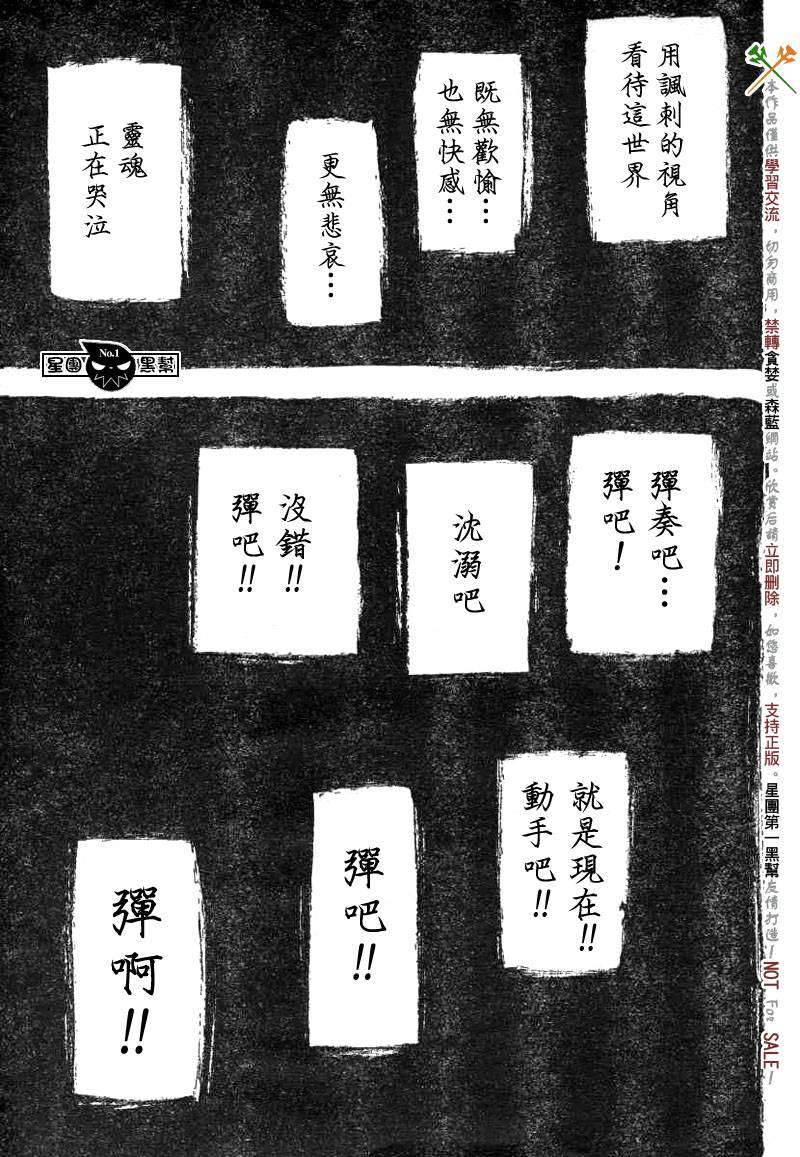 用諷刺的視角
看待這世界
既無歡愉…
也無快感…
更無悲哀…
靈魂
正在哭泣
星團
No.1
黑幫
彈奏吧…
彈吧！
沈溺吧
沒錯!!
彈吧!!
就是現在!!
動手吧!!
彈吧!!
彈啊!!
本作品僅供學習交流，切勿商用，禁轉貪婪或森藍網站。欣賞后請立即刪除，如您喜歡，支持正版。星團第一黑幫友情打造—NOT For SALE—